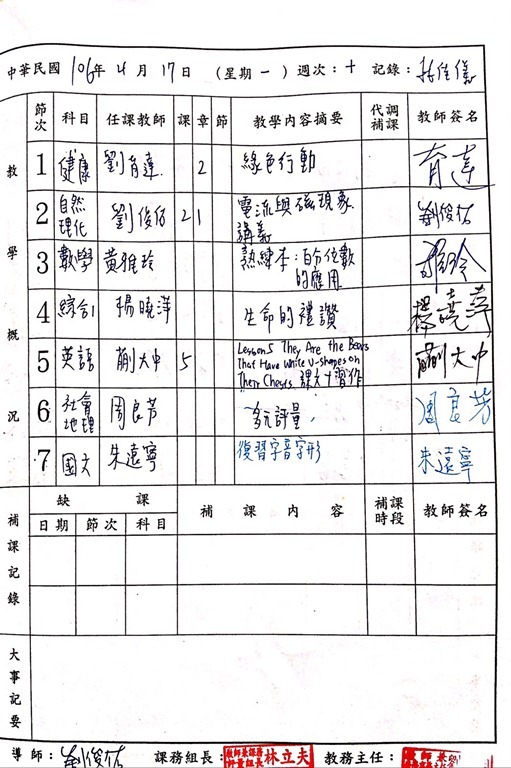 中華民國 106年 4 月 17日 (星期一) 週次：十 記錄：
教學概況
節次 科目 任課教師 課 章 節 教學內容摘要 代調補課 教師簽名
1 健康 劉育達 2 綠色行動 育達
2 自然理化 劉俊佑 2 1 電流與磁現象 講義 劉俊佑
3 數學 黃雅玲 熟練本：百分位數的應用
4 綜合1 楊曉萍 生命的禮讚 楊曉萍
5 英語 蒯大中 5 Lesson 5 They Are the Bears
That Have White V-shapes on
Their Chests 課文+習作 蒯大中
6 社會地理 周良芳 多元評量 周良芳
7 國文 朱遠寧 復習字音字形 朱遠寧
補課記錄
缺課 補課內容 補課時段 教師簽名
日期 節次 科目
大事記要
導師：劉俊佑 課務組長：林立夫 教務主任：